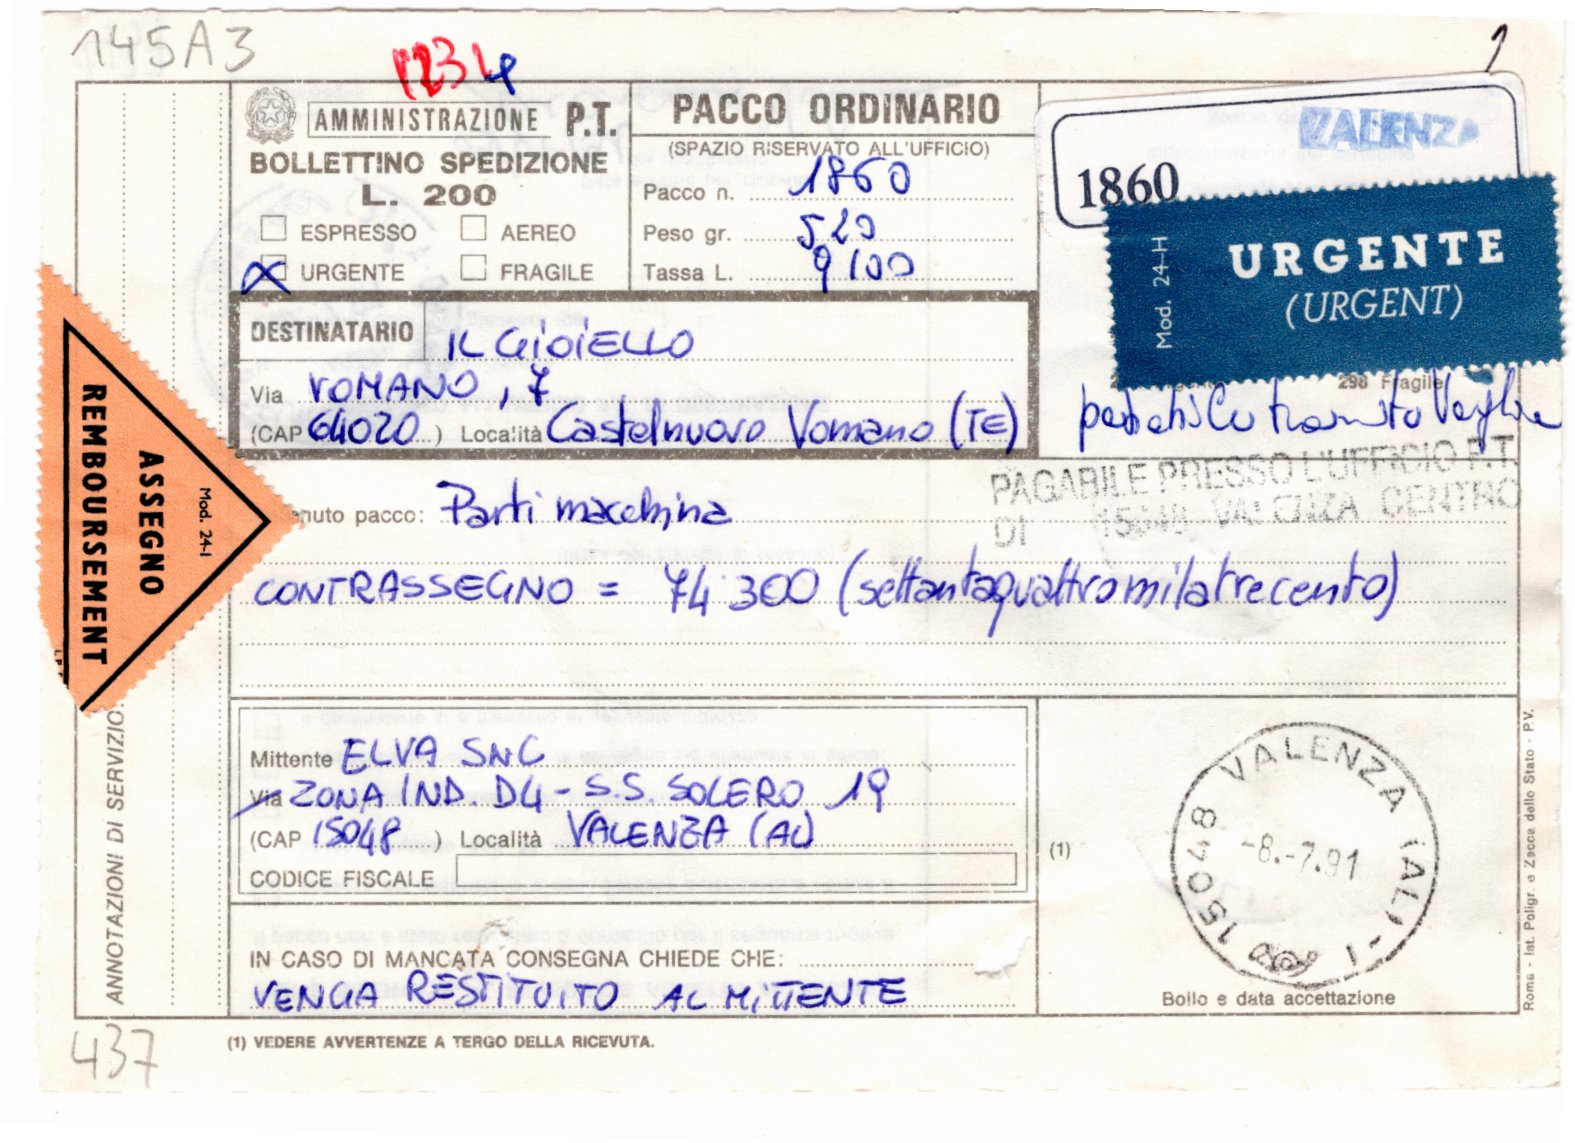 145A3
1234
1
AMMINISTRAZIONE P.T.
BOLLETTINO SPEDIZIONE
L. 200
ESPRESSO AEREO
URGENTE FRAGILE
PACCO ORDINARIO
(SPAZIO RISERVATO ALL'UFFICIO)
Pacco n. 1860
Peso gr. 520
Tassa L. 9100
VALENZA
1860
Mod. 24-H
URGENTE
(URGENT)
298 Fragile
DESTINATARIO IL GIOIELLO
Via ROMANO, 7
(CAP 64020) Località Castelnuovo Vomano (TE)
tramite
PAGABILE PRESSO L'UFFICIO P.T.
DI 15048 VALENZA CENTRO
ASSEGNO
REMBOURSEMENT
Mod. 24-I
nuto pacco: Parti macchina
CONTRASSEGNO = 74.300 (settantaquattromilatrecento)
Mittente ELVA SNC
Via ZONA IND. D4 - S.S. SOLERO 19
(CAP 15048) Località VALENZA (AL)
CODICE FISCALE
(1)
15048 VALENZA (AL) - 1
-8.-7.91
Bollo e data accettazione
IN CASO DI MANCATA CONSEGNA CHIEDE CHE:
VENGA RESTITUITO AL MITTENTE
ANNOTAZIONI DI SERVIZIO
Roma - Ist. Poligr. e Zecca dello Stato - P.V.
437
(1) VEDERE AVVERTENZE A TERGO DELLA RICEVUTA.